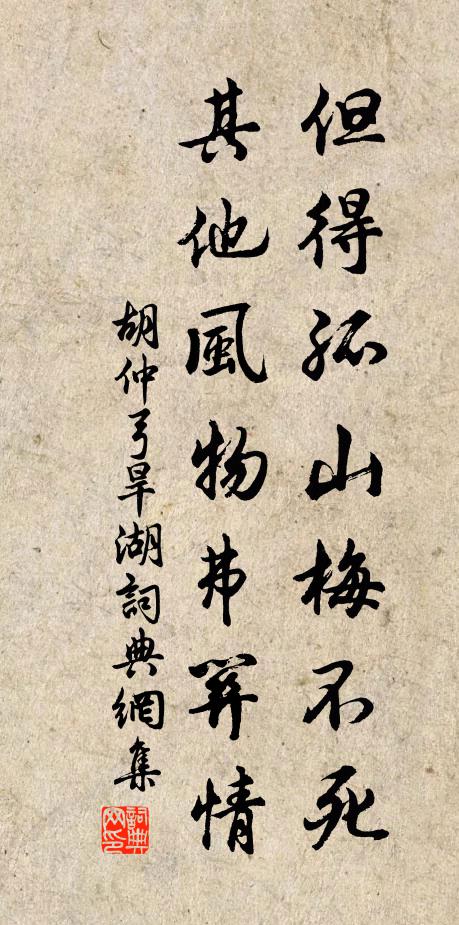 但得孤山梅不死
其他風物弗關情
胡仲弓旱湖詞典網集
詞典网印